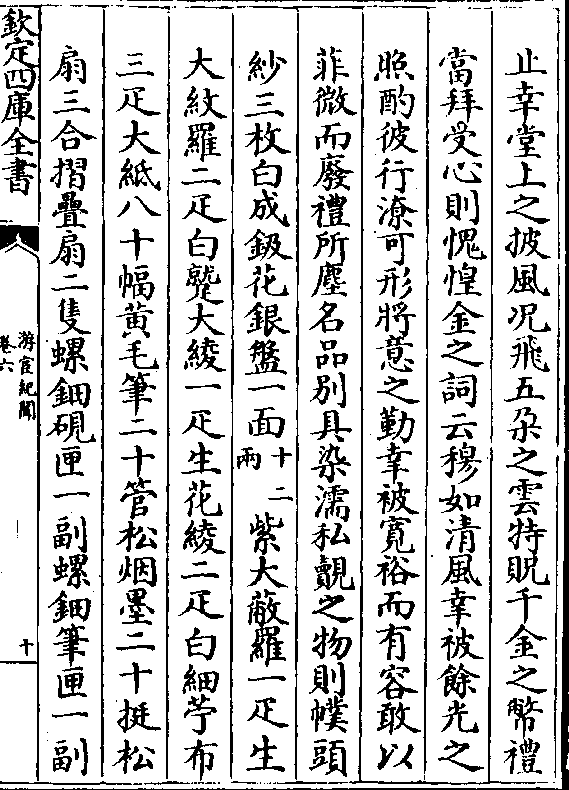 止幸堂上之披風况飛五朶之雲特貺千金之幣禮
當拜受心則愧惶金之詞云穆如清風幸被餘光之
照酌彼行潦可形將意之勤幸被寛裕而有容敢以
菲微而廢禮所塵名品別具染濡私覿之物則幞頭
紗三枚白成鈒花銀盤一面十二兩紫大蔽羅一疋生
大紋羅二疋白䠞大綾一疋生花綾二疋白細苧布
三疋大紙八十幅黄毛筆二十管松烟墨二十挺松
扇三合摺疊扇二隻螺鈿硯匣一副螺鈿筆匣一副
欽定四庫全書
游宦紀聞
卷六
十